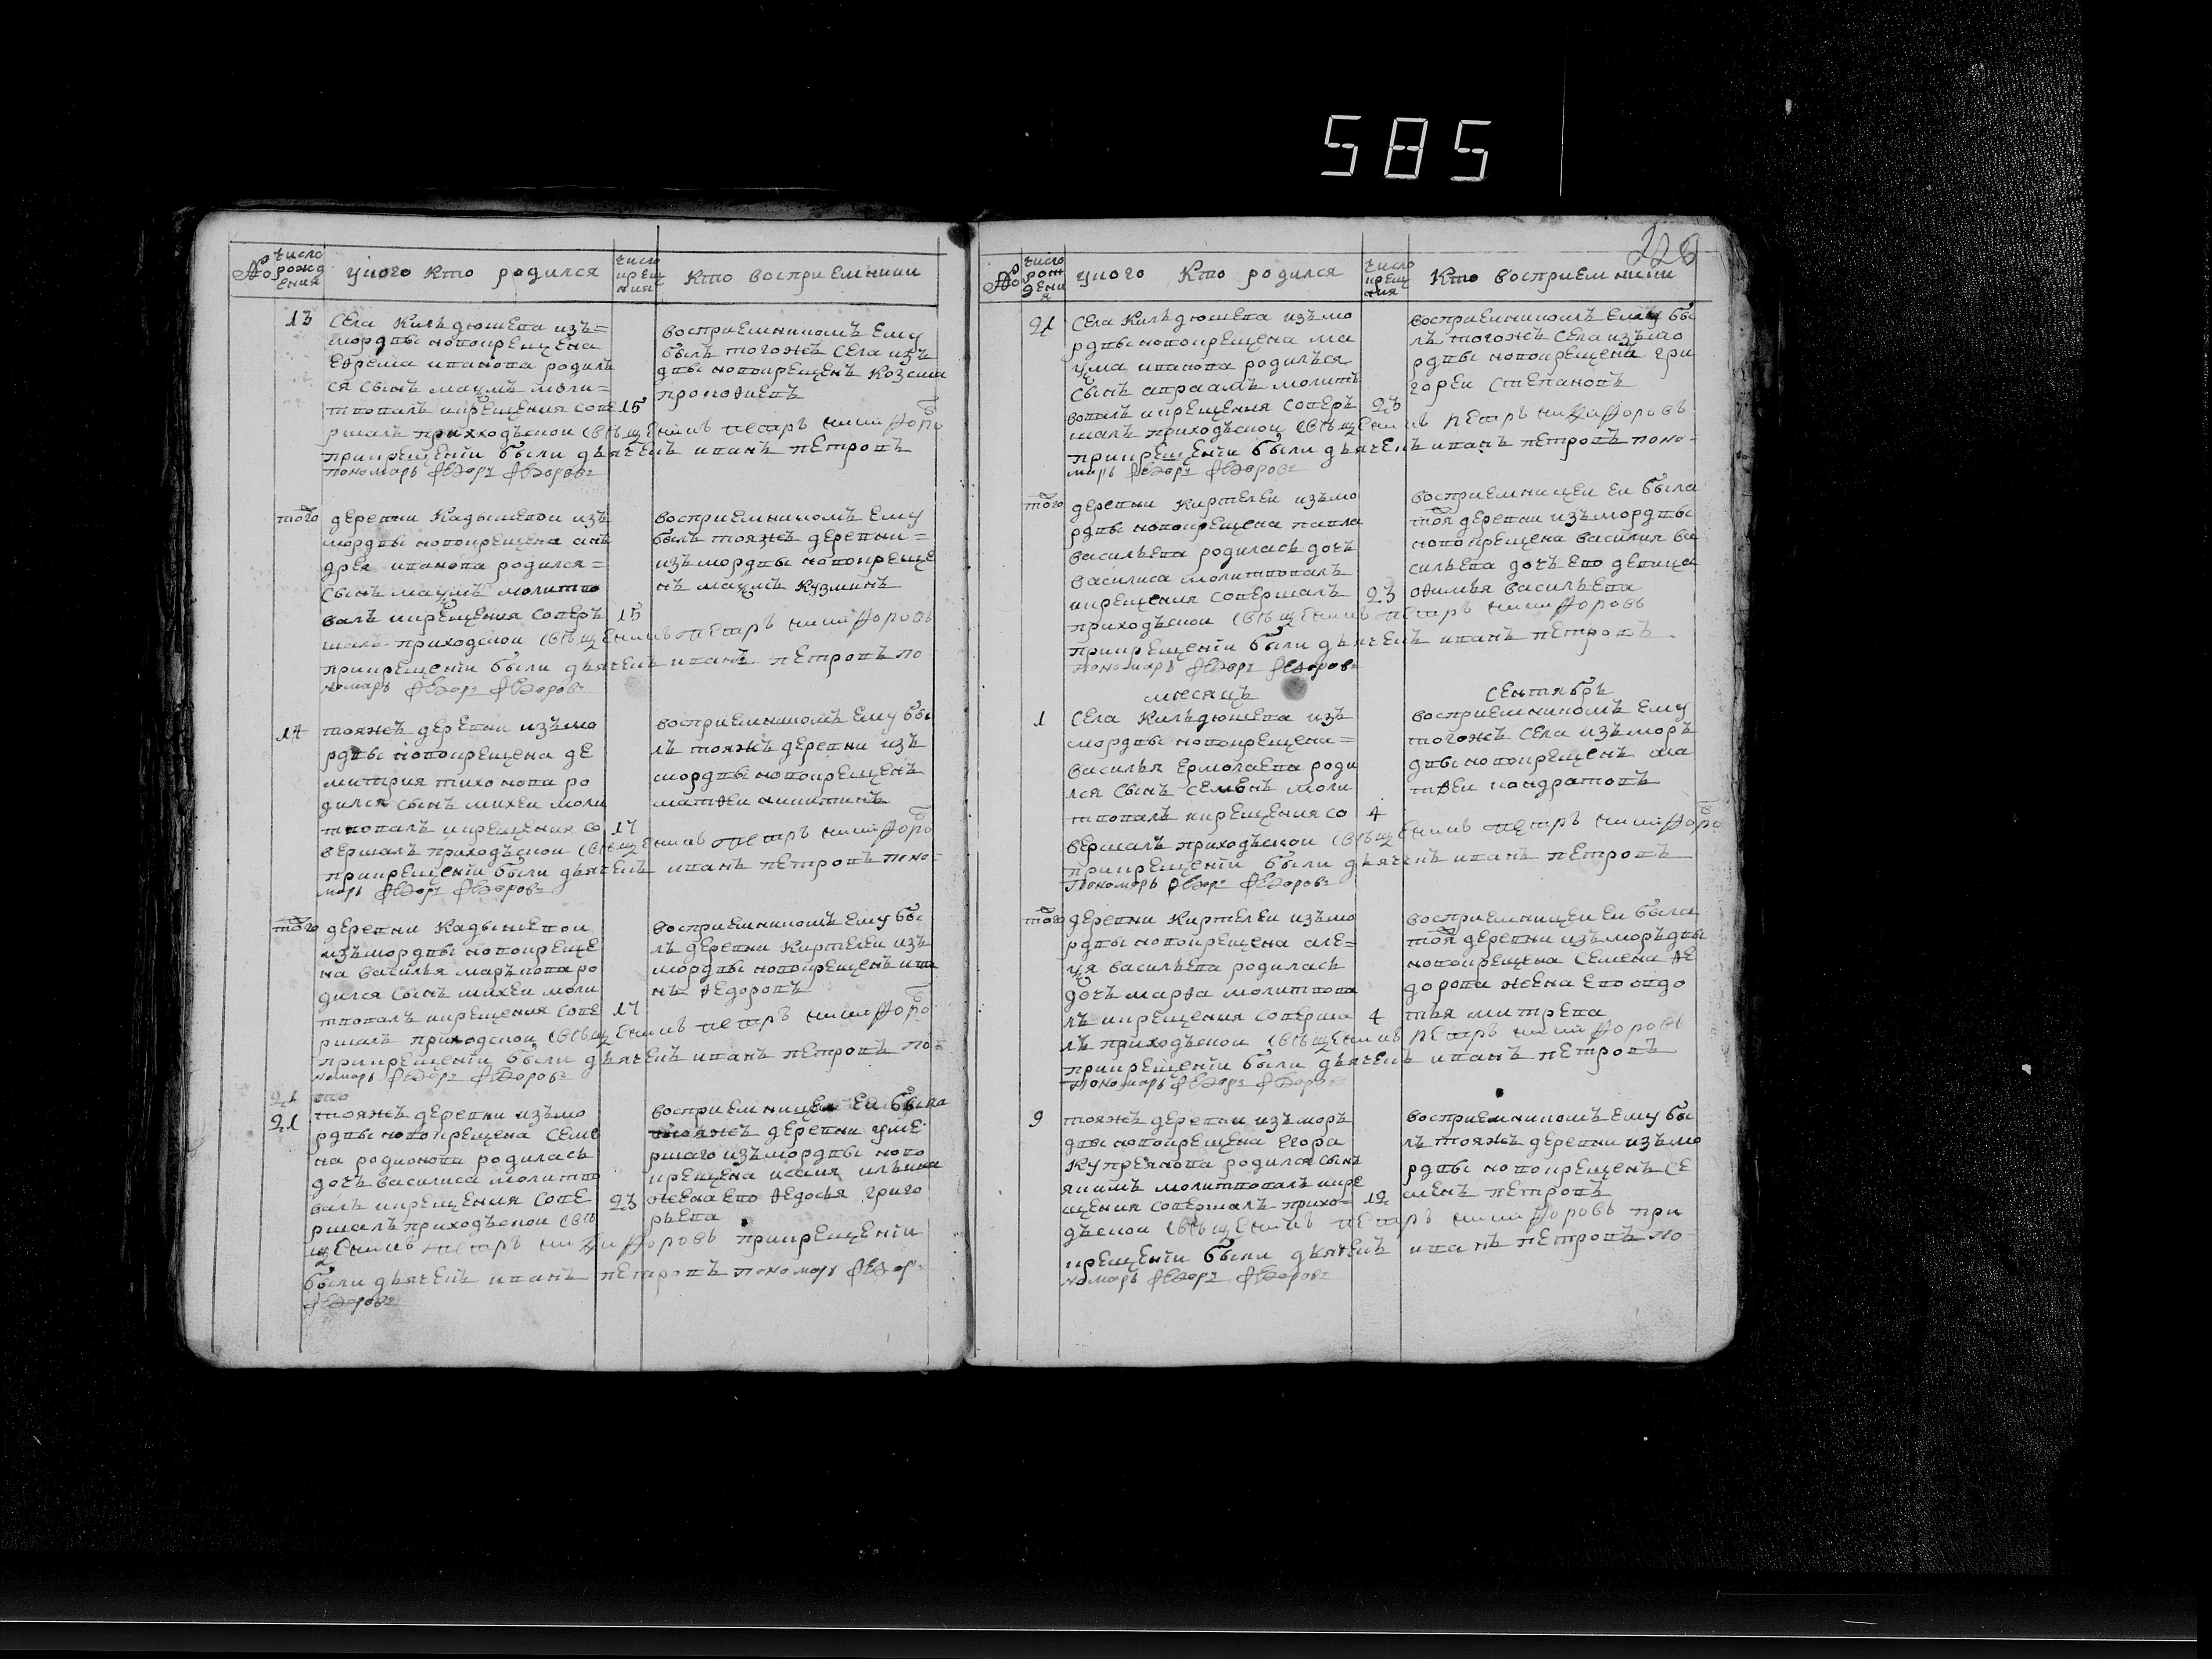 585
228
№ число рожд ения
у кого кто родился
число крещ ния
кто восприемники
13
Села Кильдюшева изъ=
мордвы новокрещена
Ефрема иванова родилъ
ся сынъ макимъ моли=
твовалъ икрещения сове 15
ршалъ приходъской священикъ петаръ никифоро
прикрещении были дьячекъ иванъ петровъ
пономарь федоръ федоровъ
восприемникомъ ему
былъ тогожъ села изъ
двы новокрещенъ козма
прокофиевъ
того
деревни Кадышевой изъ
мордвы новокрещена анъ
дрея иванова родился=
сынъ макимъ молитво
валъ икрещения соверъ 15
шалъ приходской священикъ петаръ никифоровъ
прикрещении были дьячекъ иванъ петровъ по
номарь федоръ федоровъ
восприемникомъ ему
былъ тояжъ деревни=
изъ мордвы новокреще
нъ макимъ кузминъ
14
тояжъ деревни изъ мо
рдвы новокрещена де
митрия тихонова ро
дился сынъ михеи моли
твовалъ икрещения со 17
вершалъ приходъской священикъ петаръ никифоро
прикрещении были дьячекъ иванъ петровъ поно-
марь федоръ федоровъ
восприемникомъ ему бы
лъ тояжъ деревни изъ
мордвы новокрещенъ
матфеи никитинъ
того
деревни Кадышевой
изъ мордвы новокреще
на василья маръкова ро
дился сынъ михеи моли
твовалъ икрещения сове 17
ршалъ приходской священикъ петаръ никифоро
прикрещении были дьячекъ иванъ петровъ по=
номарь федоръ федоровъ
восприемникомъ ему бы
лъ деревни Киртелеи изъ
мордвы новокрещенъ ива
нъ федоровъ
21
21
тояжъ деревни изъ мо
рдвы новокрещена семе
на родионова родилась
дочь василиса молитво
валъ икрещения сове 23
ршалъ приходъской свя
щеникъ петаръ никифоровъ прикрещении
были дьячекъ иванъ петровъ пономарь федоръ
федоровъ
восприемницеи еи была
тояжъ деревни уме
ршаго изъ мордвы ново
крещена исаия ильина
жена ево федосья григо
рьева
№ число рож дени я
у кого кто родился
число крещ ния
кто восприемники
21
Села Кильдюшева изъ мо
рдвы новокрещена ма
кима иванова родилъся
сынъ авраамъ молитъ
вовалъ икрещения соверъ 23
шалъ приходъской священикъ петаръ никифоровъ
прикрещении были дьячекъ иванъ петровъ поно-
марь федоръ федоровъ
восприемникомъ ему бы
лъ тогожъ села изъ мо
рдвы новокрещенъ гри
гореи степановъ
того
деревни Киртелеи изъ мо
рдвы новокрещена павла
васильева родилась дочь
василиса молитвовалъ
икрещения совершалъ 23
приходъской священикъ петаръ никифоровъ
прикрещении были дьячекъ иванъ петровъ
пономарь федоръ федоровъ
восприемницеи еи была
тоя деревни изъ мордвы
новокрещена василия ва
сильева дочь ево девица
офимья васильева
месяцъ
Сентябрь
1
Села Кильдюшева изъ
мордвы новокрещена=
василья ермолаева роди
лся сынъ семенъ моли
твовалъ икрещения со 4
вершалъ приходъской священикъ петаръ никифоро
прикрещении были дьячекъ иванъ петровъ
пономарь федоръ федоровъ
восприемникомъ ему
тогожъ села изъ моръ
двы новокрещенъ ма
тфеи кондратовъ
того
деревни Киртелеи изъ мо
рдвы новокрещена але=
кя васильева родилась
дочь марфа молитвова
лъ икрещения соверша 4
лъ приходъской священикъ петаръ никифоровъ
прикрещении были дьячекъ иванъ петровъ
пономарь федоръ федоровъ
восприемницеи еи была
тоя деревни изъ моръдвы
новокрещена семена фе
дорова жена ево овдо
тья митрева
9
тояжъ деревни изъ моръ
двы новокрещена егора
купреянова родился сынъ
якимъ молитвовалъ икре
щения совершалъ прихо= 12
дъской священикъ петаръ никифоровъ при
крещении были дьячекъ иванъ петровъ по
номарь федоръ федоровъ
восприемникомъ ему бы
лъ тояжъ деревни изъ мо
рдвы новокрещенъ се
менъ петровъ